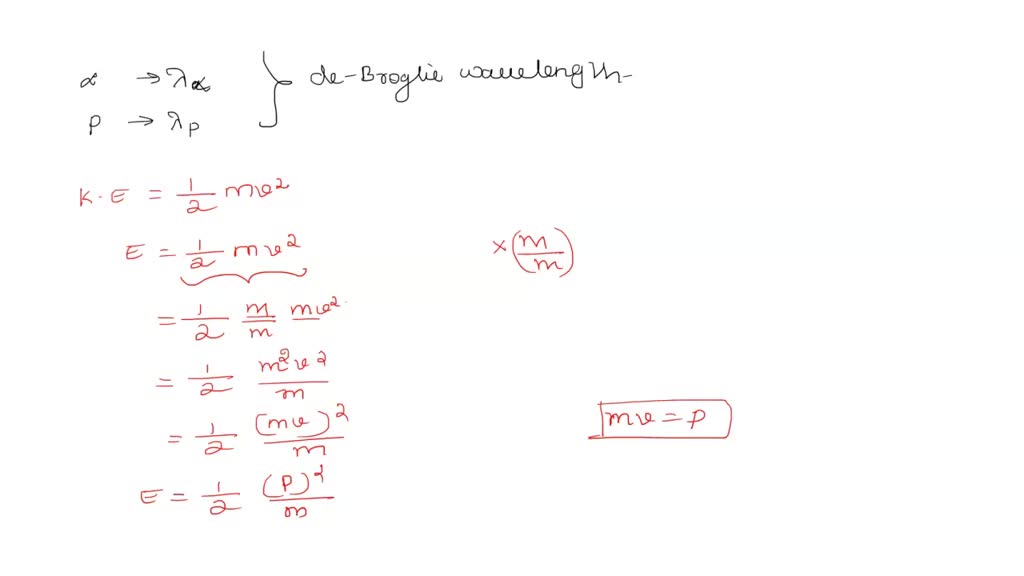 α → λα } de-Broglie wavelength-
P → λP
K.E = 1/2 mv²
E = 1/2 mv² ×(m/m)
= 1/2 m/m mv²
= 1/2 m²v²/m
= 1/2 (mv)²/m
mv = P
E = 1/2 (P)²/m